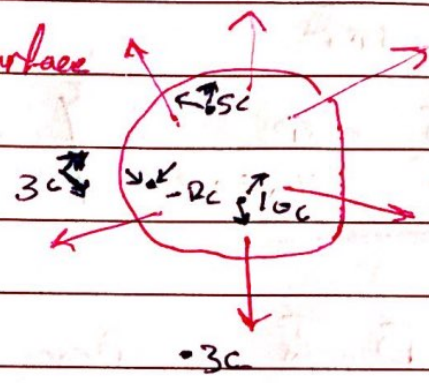 urface
5c
3c
-2c
10c
•3c